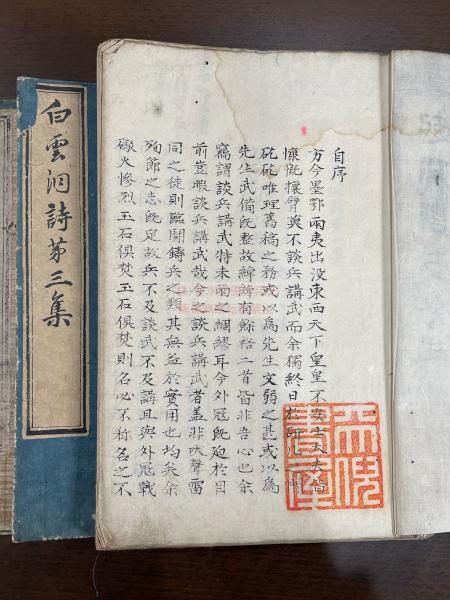 自序
方今墨鄂兩夷出没東西天下皇皇不安士大夫皆
慷慨攘臂莫不談兵講武而余獨終日於研几之間
矻矻唯理舊稿之務或以爲先生文弱之甚或以爲
先生武備既整故綽綽有餘裕二者皆非吾心也余
竊謂談兵講武特未雨之綢繆耳今外冦既迫於目
前豈暇談兵講武哉今之談兵講武者盖非吠聲雷
同之徒則臨鬭鑄兵之類其無益於實用也均矣余
殉節之志既定故兵不及談武不及講且與外冦戰
礮火慘烈玉石俱焚玉石俱焚則名必不称名之不
白雲洞詩第三集